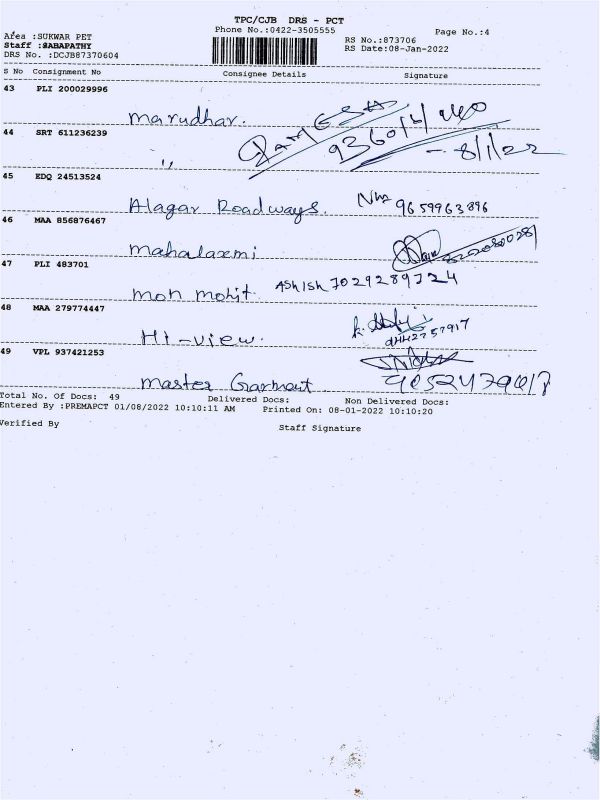 TPC/CJB DRS - PCT
Phone No.:0422-3505555
Page No.:4
Area :SUKWAR PET
RS No.:873706
Staff :SABAPATHY
RS Date:08-Jan-2022
DRS No. :DCJB87370604
S No Consignment No Consignee Details Signature
43 PLI 200029996
Marudhar.
44 SRT 611236239
,, 8/1/22
45 EDQ 24513524
Alagar Roadways. 9659963896
46 MAA 856876467
Mahalaxmi
47 PLI 483701
Moh Mohit Ashish 7029289724
48 MAA 279774447
Hi-view.
49 VPL 937421253
Master Garment
Total No. Of Docs: 49 Delivered Docs: Non Delivered Docs:
Entered By :PREMAPCT 01/08/2022 10:10:11 AM Printed On: 08-01-2022 10:10:20
Verified By Staff Signature